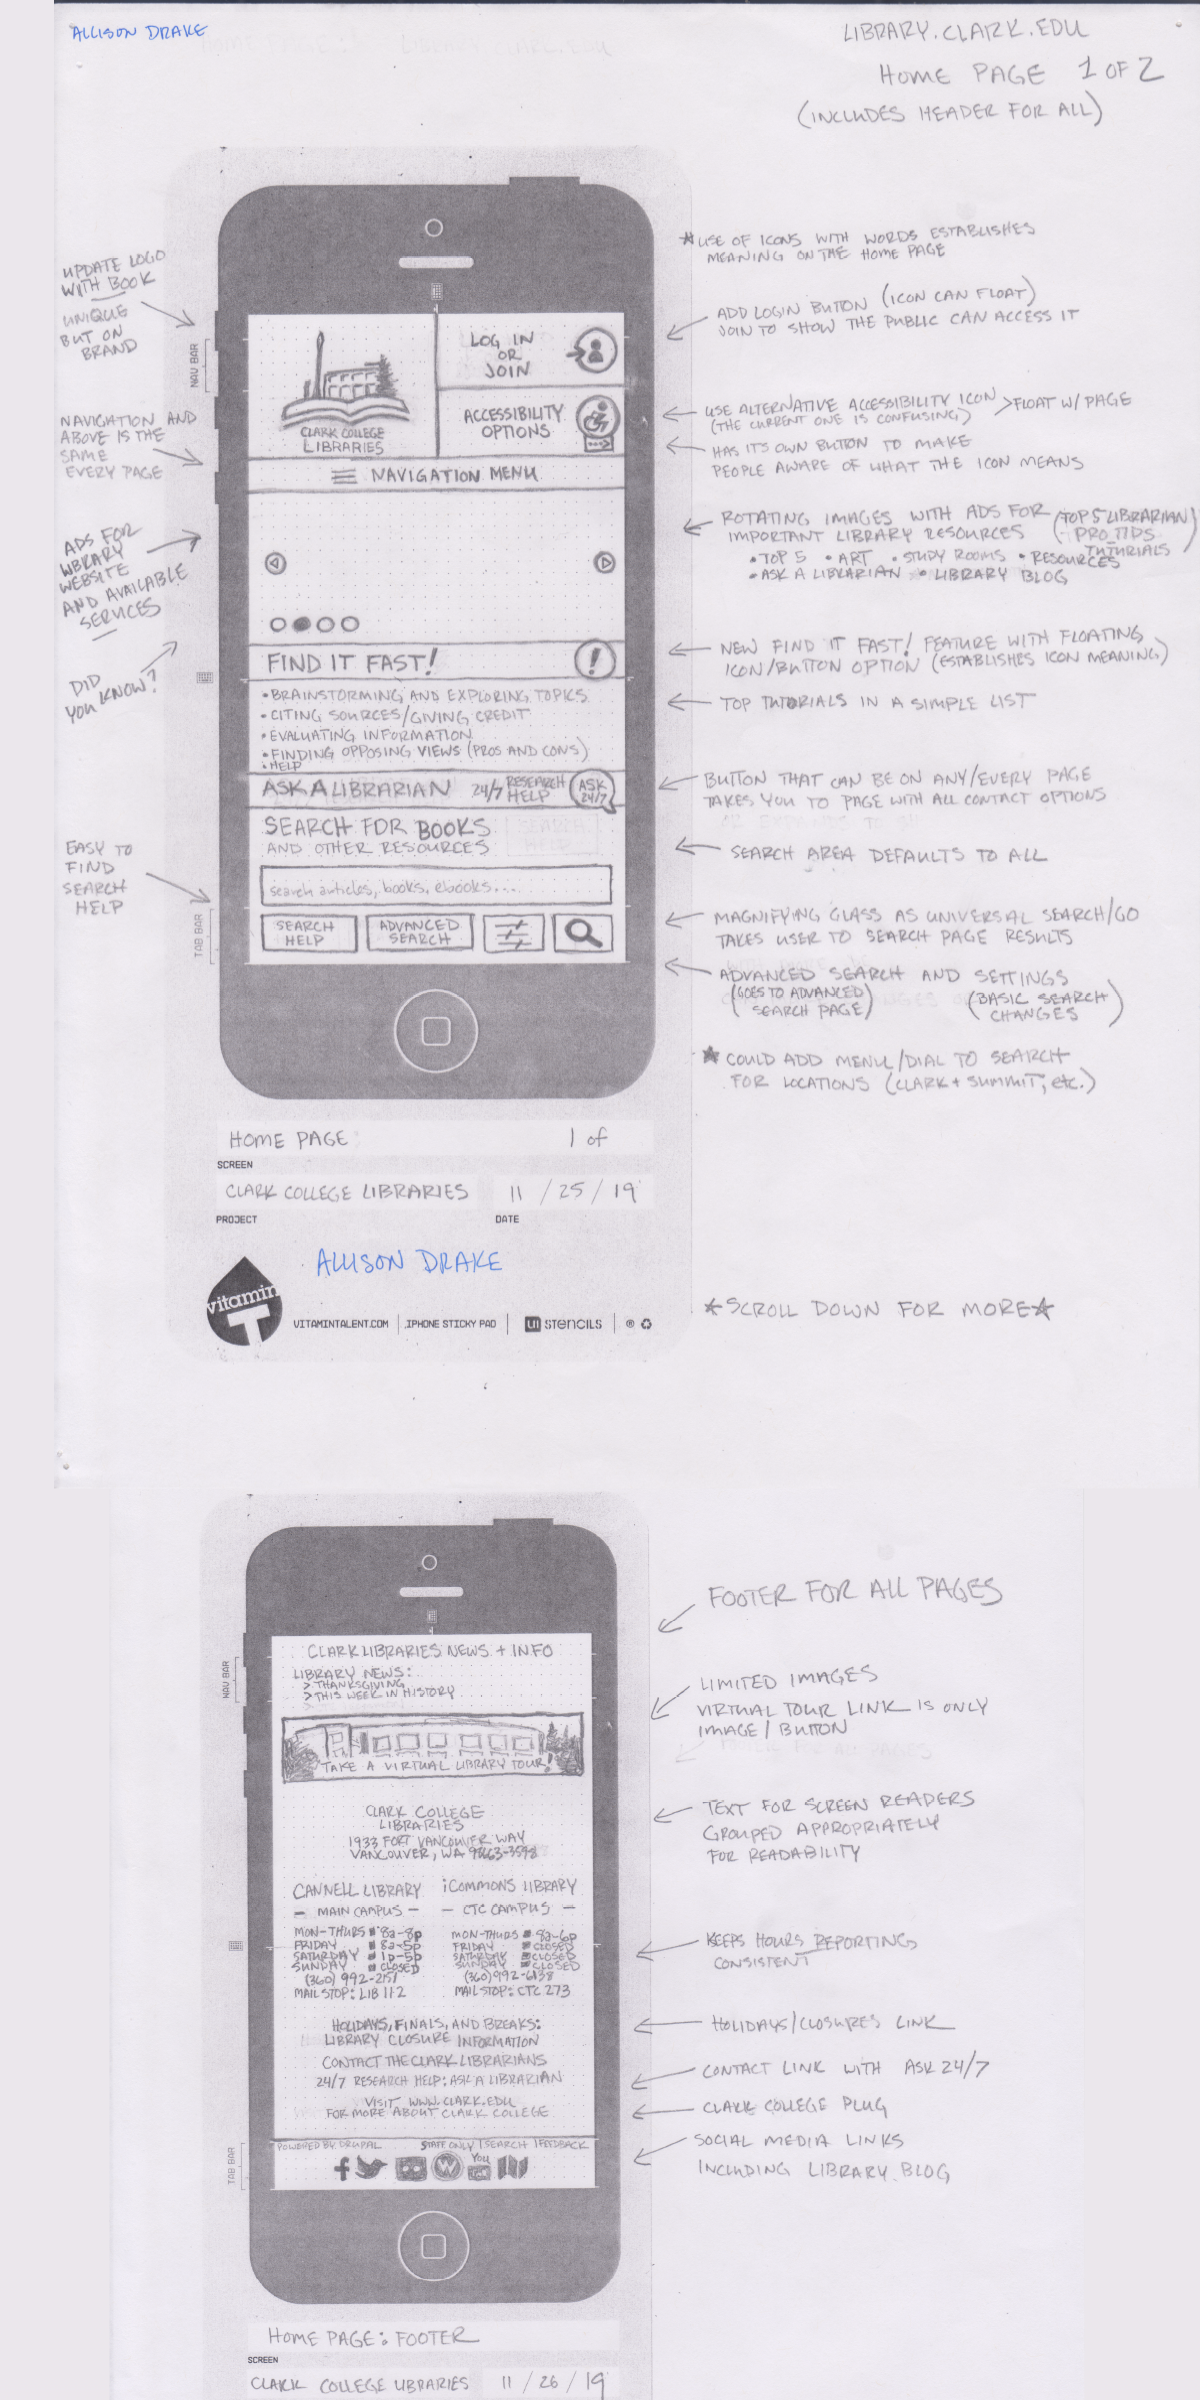 ALLISON DRAKE
LIBRARY.CLARK.EDU
HOME PAGE 1 OF 2
(INCLUDES HEADER FOR ALL)
UPDATE LOGO
WITH BOOK
UNIQUE
BUT ON
BRAND
NAVIGATION AND
ABOVE IS THE
SAME
EVERY PAGE
ADS FOR
LIBRARY
WEBSITE
AND AVAILABLE
SERVICES
DID
YOU KNOW?
EASY TO
FIND
SEARCH
HELP
NAV BAR
TAB BAR
CLARK COLLEGE
LIBRARIES
LOG IN
OR
JOIN
ACCESSIBILITY
OPTIONS
NAVIGATION MENU
FIND IT FAST! !
• BRAINSTORMING AND EXPLORING TOPICS
• CITING SOURCES/GIVING CREDIT
• EVALUATING INFORMATION
• FINDING OPPOSING VIEWS (PROS AND CONS)
• HELP
ASK A LIBRARIAN 24/7 RESEARCH HELP
ASK
24/7
SEARCH FOR BOOKS
AND OTHER RESOURCES
search articles, books, ebooks....
SEARCH
HELP
ADVANCED
SEARCH
★ USE OF ICONS WITH WORDS ESTABLISHES
MEANING ON THE HOME PAGE
ADD LOGIN BUTTON (ICON CAN FLOAT)
JOIN TO SHOW THE PUBLIC CAN ACCESS IT
USE ALTERNATIVE ACCESSIBILITY ICON > FLOAT W/ PAGE
(THE CURRENT ONE IS CONFUSING)
HAS ITS OWN BUTTON TO MAKE
PEOPLE AWARE OF WHAT THE ICON MEANS
ROTATING IMAGES WITH ADS FOR
IMPORTANT LIBRARY RESOURCES
(TOP 5 LIBRARIAN)
TUTORIALS
• TOP 5 • ART • STUDY ROOMS • RESOURCES
• ASK A LIBRARIAN • LIBRARY BLOG
NEW FIND IT FAST! FEATURE WITH FLOATING
ICON/BUTTON OPTION (ESTABLISHES ICON MEANING)
TOP TUTORIALS IN A SIMPLE LIST
BUTTON THAT CAN BE ON ANY/EVERY PAGE
TAKES YOU TO PAGE WITH ALL CONTACT OPTIONS
SEARCH AREA DEFAULTS TO ALL
MAGNIFYING GLASS AS UNIVERSAL SEARCH/GO
TAKES USER TO SEARCH PAGE RESULTS
ADVANCED SEARCH AND SETTINGS
(GOES TO ADVANCED
SEARCH PAGE)
(BASIC SEARCH
CHANGES)
★ COULD ADD MENU/DIAL TO SEARCH
FOR LOCATIONS (CLARK + SUMMIT, etc.)
HOME PAGE 1 of
SCREEN
CLARK COLLEGE LIBRARIES 11 / 25 / 19
PROJECT DATE
ALLISON DRAKE
vitamin
T
VITAMINTALENT.COM | IPHONE STICKY PAD | UI STENCILS | ®
★ SCROLL DOWN FOR MORE ★
NAV BAR
TAB BAR
CLARK LIBRARIES NEWS + INFO
LIBRARY NEWS:
> THANKSGIVING
> THIS WEEK IN HISTORY
TAKE A VIRTUAL LIBRARY TOUR!
CLARK COLLEGE
LIBRARIES
1933 FORT VANCOUVER WAY
VANCOUVER, WA 98663-3598
CANNELL LIBRARY
— MAIN CAMPUS —
MON-THURS 8a-8p
FRIDAY 8a-5p
SATURDAY 1p-5p
SUNDAY CLOSED
(360) 992-2151
MAIL STOP: LIB 112
iCOMMONS LIBRARY
— CTC CAMPUS —
MON-THURS 8a-6p
FRIDAY CLOSED
SATURDAY CLOSED
SUNDAY CLOSED
(360) 992-6138
MAIL STOP: CTC 273
HOLIDAYS, FINALS, AND BREAKS:
LIBRARY CLOSURE INFORMATION
CONTACT THE CLARK LIBRARIANS
24/7 RESEARCH HELP: ASK A LIBRARIAN
VISIT WWW.CLARK.EDU
FOR MORE ABOUT CLARK COLLEGE
POWERED BY DRUPAL STAFF ONLY | SEARCH | FEEDBACK
f W You
FOOTER FOR ALL PAGES
LIMITED IMAGES
VIRTUAL TOUR LINK IS ONLY
IMAGE/BUTTON
TEXT FOR SCREEN READERS
GROUPED APPROPRIATELY
FOR READABILITY
KEEPS HOURS REPORTING
CONSISTENT
HOLIDAYS/CLOSURES LINK
CONTACT LINK WITH ASK 24/7
CLARK COLLEGE PLUG
SOCIAL MEDIA LINKS
INCLUDING LIBRARY BLOG
HOME PAGE: FOOTER
SCREEN
CLARK COLLEGE LIBRARIES 11 / 26 / 19